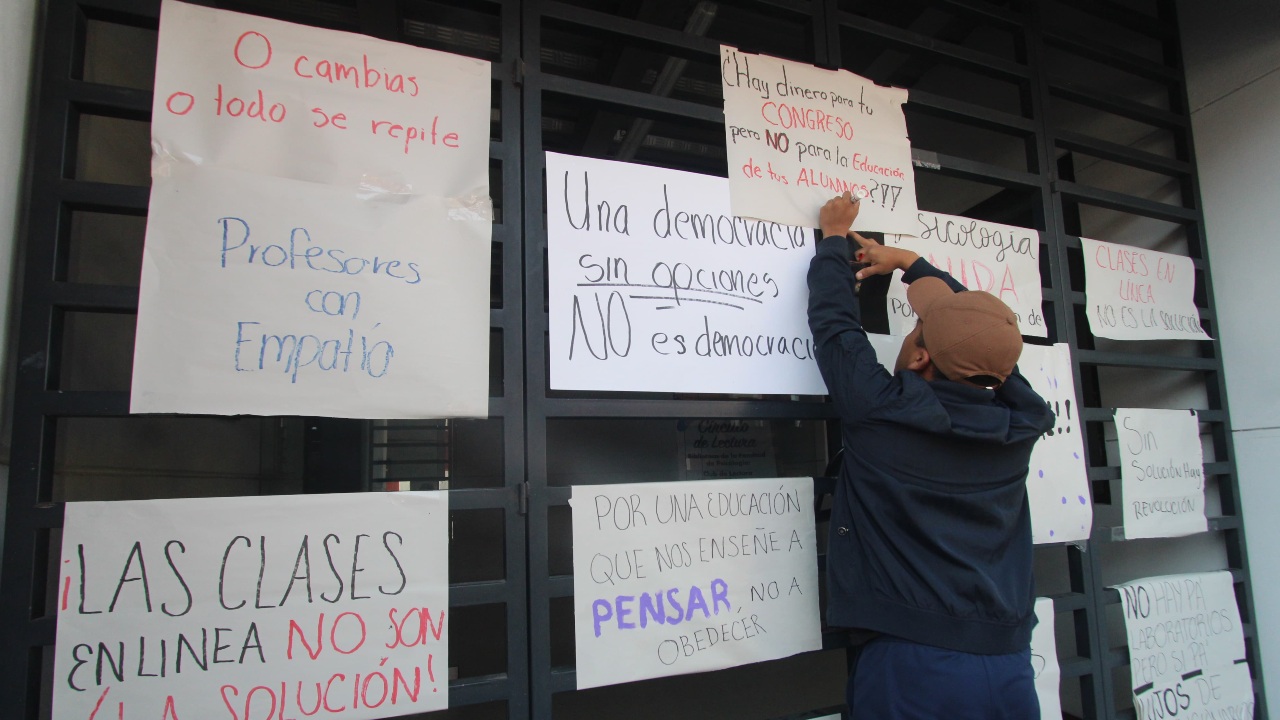 O cambias
o todo se repite
Profesores
con
Empatía
¡LAS CLASES
EN LINEA NO SON
¡LA SOLUCIÓN!
Una democracia
sin opciones
NO es democraci
¿Hay dinero para tu
CONGRESO
pero NO para la Educación
de tus ALUMNOS?!!!
Círculo
de Lectura
POR UNA EDUCACIÓN
QUE NOS ENSEÑE A
PENSAR, NO A
OBEDECER
sicologia
de
!!
CLASES EN
LÍNEA
NO ES LA SOLUCIÓN
Sin
SOLUCIÓN Hay
REVOLUCIÓN
NO HAY PA
LABORATORIOS
PERO SI PA'
DE